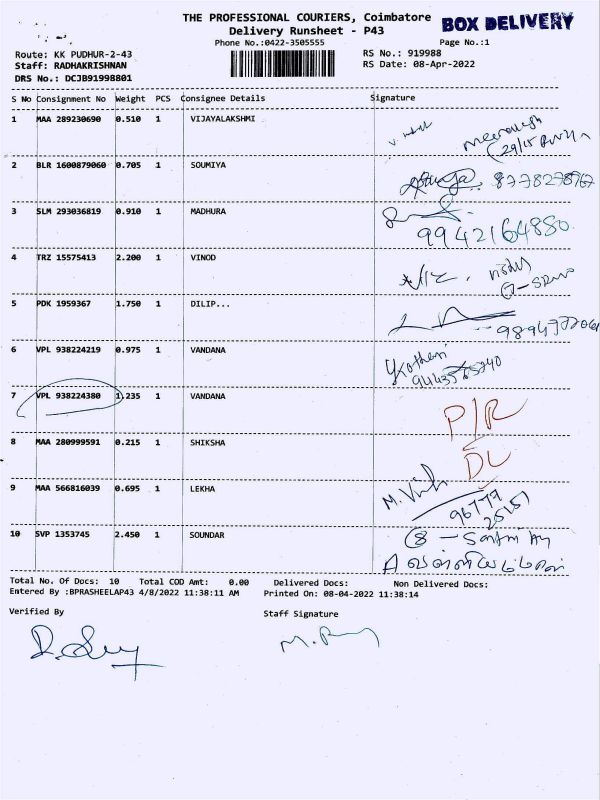 THE PROFESSIONAL COURIERS, Coimbatore
BOX DELIVERY
Delivery Runsheet - P43
Phone No.:0422-3505555
Page No.:1
Route: KK PUDHUR-2-43
RS No.: 919988
Staff: RADHAKRISHNAN
RS Date: 08-Apr-2022
DRS No.: DCJB91998801
S No Consignment No Weight PCS Consignee Details Signature
1 MAA 289230690 0.510 1 VIJAYALAKSHMI
2 BLR 1600879060 0.705 1 SOUMIYA
3 SLM 293036819 0.910 1 MADHURA
9942164880
4 TRZ 15575413 2.200 1 VINOD
5 PDK 1959367 1.750 1 DILIP...
6 VPL 938224219 0.975 1 VANDANA
7 VPL 938224380 1.235 1 VANDANA P/R
8 MAA 280999591 0.215 1 SHIKSHA DL
9 MAA 566816039 0.695 1 LEKHA
96777
25151
10 SVP 1353745 2.450 1 SOUNDAR
Total No. Of Docs: 10 Total COD Amt: 0.00 Delivered Docs: Non Delivered Docs:
Entered By :BPRASHEELAP43 4/8/2022 11:38:11 AM Printed On: 08-04-2022 11:38:14
Verified By Staff Signature